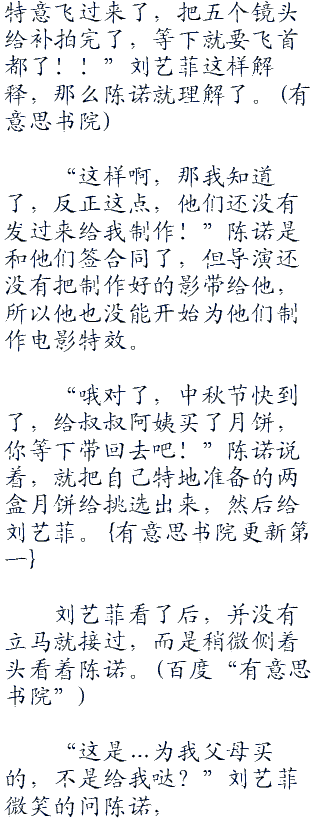 特意飞过来了，把五个镜头
给补拍完了，等下就要飞首
都了！！”刘艺菲这样解
释，那么陈诺就理解了。(有
意思书院)
“这样啊，那我知道
了，反正这点，他们还没有
发过来给我制作！”陈诺是
和他们签合同了，但导演还
没有把制作好的影带给他，
所以他也没能开始为他们制
作电影特效。
“哦对了，中秋节快到
了，给叔叔阿姨买了月饼，
你等下带回去吧！”陈诺说
着，就把自己特地准备的两
盒月饼给挑选出来，然后给
刘艺菲。{有意思书院更新第
一}
刘艺菲看了后，并没有
立马就接过，而是稍微侧着
头看着陈诺。(百度“有意思
书院”)
“这是...为我父母买
的，不是给我哒？”刘艺菲
微笑的问陈诺，